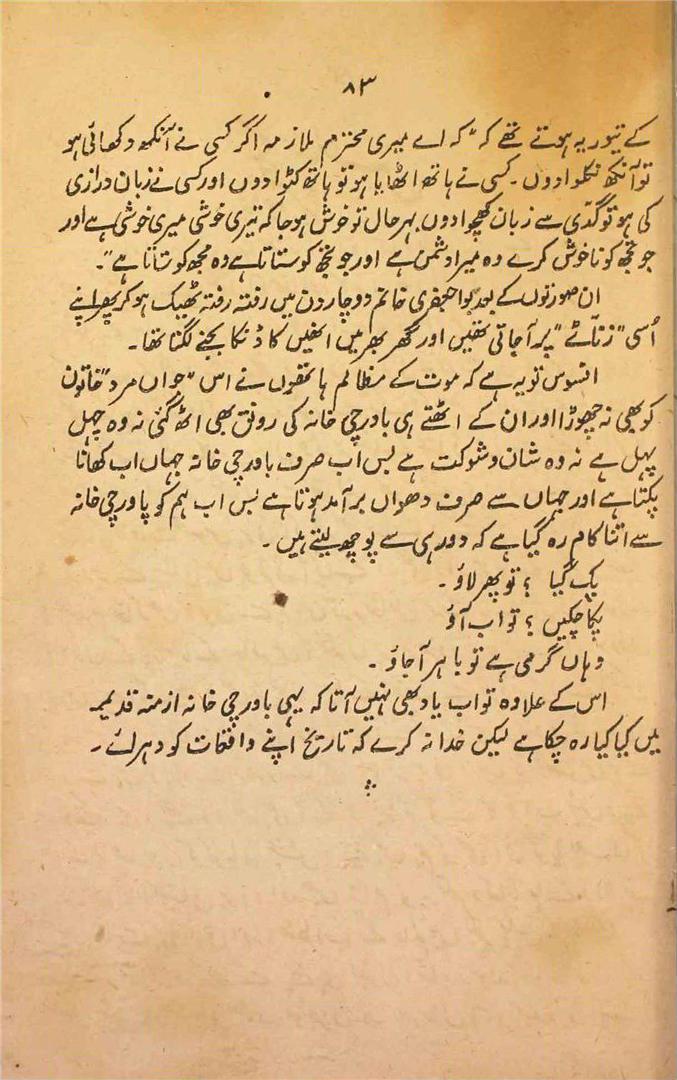 ۸۳
کے تیور یہ ہوتے تھے کہ "کہ اے میری محترم ملازمہ اگر کسی نے آنکھ دکھائی ہو
تو آنکھ نکلوا دوں۔ کسی نے ہاتھ اٹھایا ہو تو ہاتھ کٹوا دوں اور کسی نے زبان درازی
کی ہو تو گدّی سے زبان کھچوا دوں بہرحال تو خوش ہو جا کہ تیری خوشی میری خوشی ہے اور
جو تجھ کو ناخوش کرے وہ میرا دشمن ہے اور جو تجھ کو ستاتا ہے وہ مجھ کو ستاتا ہے"۔
ان صورتوں کے بعد بوا جعفری خانم دو چار دن میں رفتہ رفتہ ٹھیک ہو کر پھر اپنے
اُسی "زنّاٹے" پر آ جاتی تھیں اور گھر بھر میں انھیں کا ڈنکا بجنے لگتا تھا۔
افسوس تو یہ ہے کہ موت کے مظالم ہاتھوں نے اس "جواں مرد" خاتون
کو بھی نہ چھوڑا اور ان کے اٹھتے ہی باورچی خانہ کی رونق بھی اٹھ گئی نہ وہ چہل
پہل ہے نہ وہ شان و شوکت ہے بس اب صرف باورچی خانہ جہاں اب کھانا
پکتا ہے اور جہاں سے صرف دھواں برآمد ہوتا ہے بس اب ہم کو باورچی خانہ
سے اتنا کام رہ گیا ہے کہ دور ہی سے پوچھ لیتے ہیں۔
پک گیا ؟ تو پھر لاؤ۔
پکا چکیں ؟ تو اب آؤ
وہاں گرمی ہے تو باہر آ جاؤ۔
اس کے علاوہ تو اب یاد بھی نہیں آتا کہ یہی باورچی خانہ ازمنہ قدیمہ
میں کیا کیا رہ چکا ہے لیکن خدا نہ کرے کہ تاریخ اپنے واقعات کو دہرائے۔